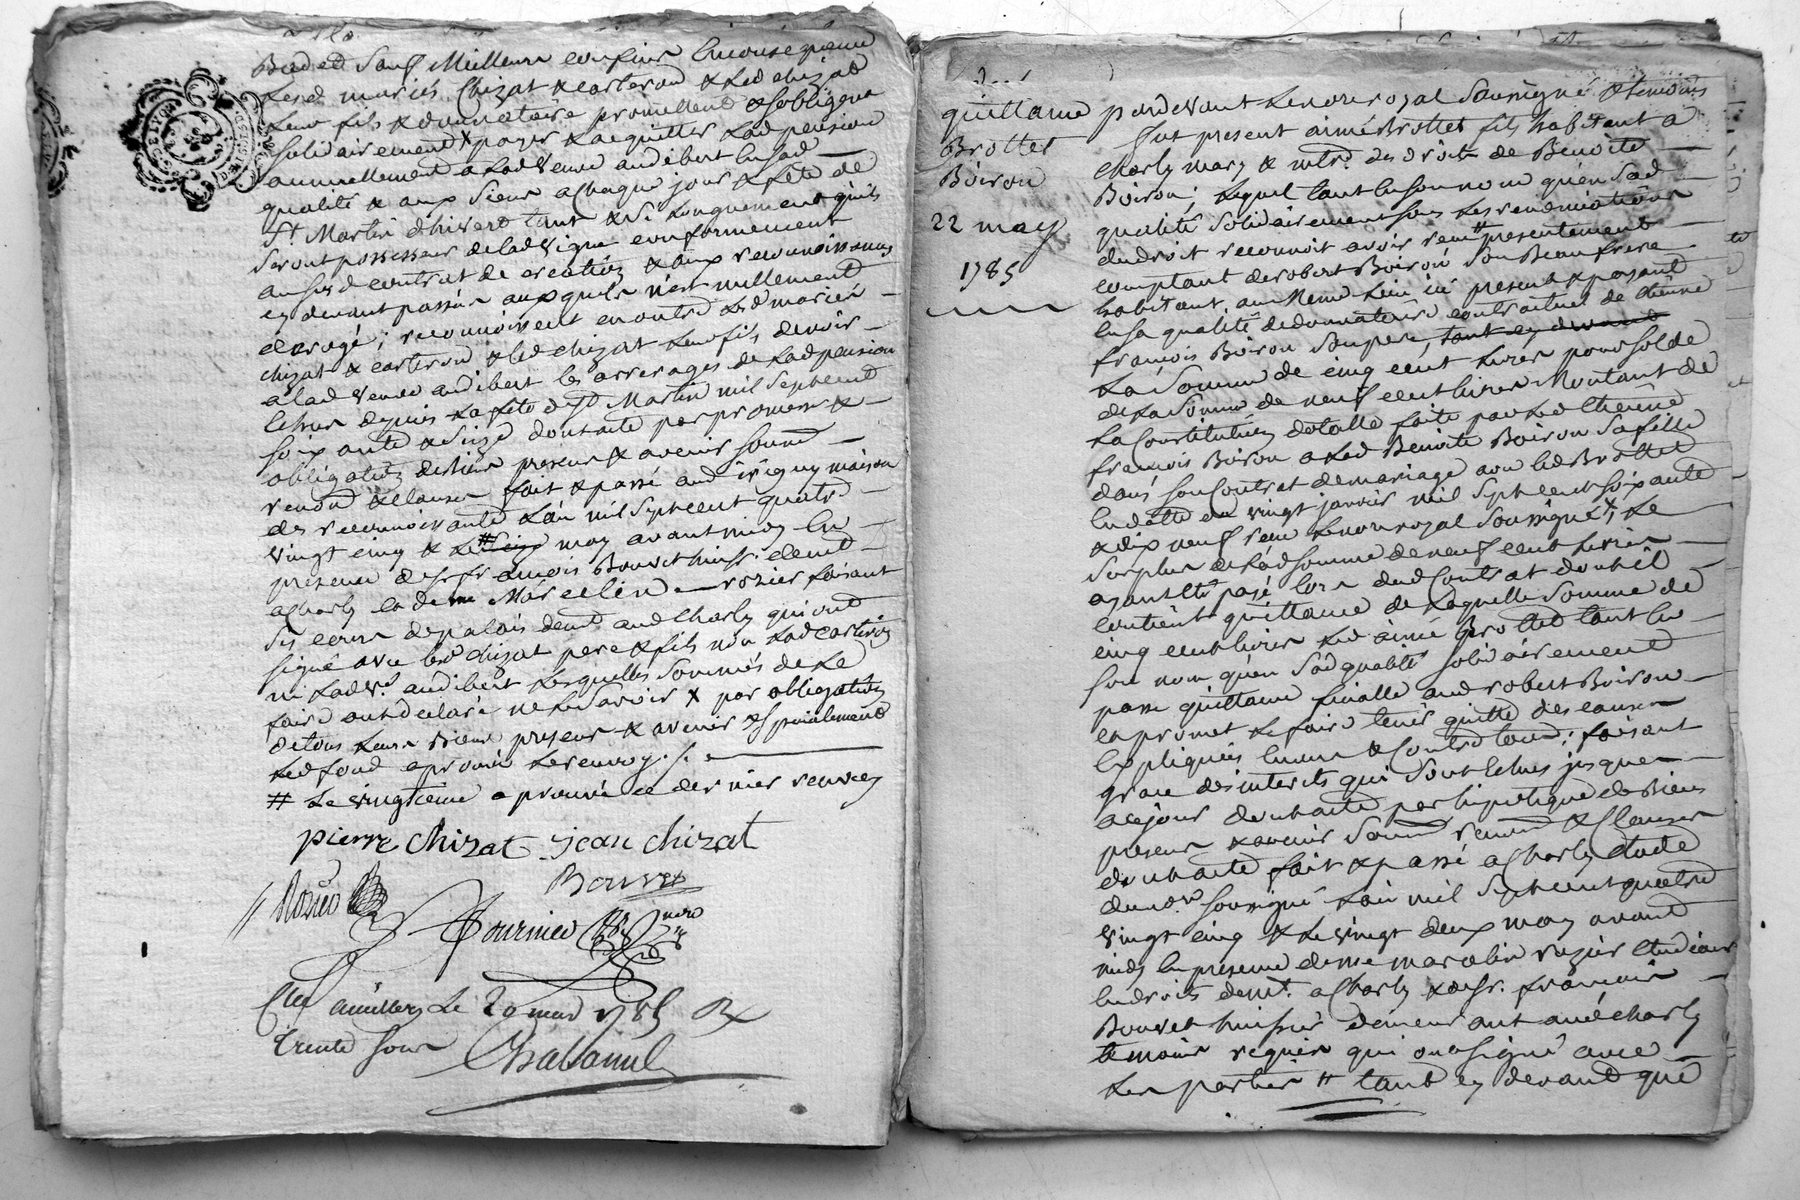 Sauf Meilleurs confins
Lesd mariés Chizat & carteron & Led chizat
Leur fils & donnataire promettent & s'obligent
solidairement x payer & acquitter Lad pension
annuellement a Lad veuve audibert
qualité & aux sieur a chaque jour & fête de
St Martin d'hivert tant & si Longuement qu'ils
seront possesseur delad vigne conformement
au susd contrat de création & aux reconnoissances
cy devant passés auxquels n'est nullement
derogé ; reconnoissent en outre Lesd mariés
chizat & carteron & led chizat Leur fils devoir
a lad veuve audibert les arrerages de Lad pension
Echus depuis La fête de St Martin mil Septcent
soixante & seize dont acte par promesse &
obligation de biens presens & avenir soumis
renon & clauses fait & passé aud irigny maison
des reconnoissants L'an mil sept cent quatre
vingt cinq & Le # may avant midy En
presence de sr françois Bouvet huissr. demt
a Charly et de me Marcelin rozier faisant
ses cours de palais demt aud Charly qui ont
signé avec lesd chizat pere & fils non Lad carteron
ni Lad ve. audibert Lesquelles sommés de Le
faire ont declaré ne Le savoir x par obligation
de tous Leurs Biens presens & avenir & spécialement
Led fond aprouvé Le renvoy ./.
# Le vingtieme aprouvé ce dernier renvoy
pierre chizat jean chizat
Bouvet
Rozier
Fournier
Cllé a Le 20 may 1785 R
trente sous
Chabanel
quittance
Brottet
Boiron
22 may
1785
pardevant Le nore royal Soussigné & temoins
fut present aimé brottet fils habitant a
Charly mary & mtre. des droits de Benoite
Boiron ; Lequel tant En son nom qu'en sad
qualité solidairement sous Les renonciations
de droit reconnoit avoir reçu presentement
comptant de robert Boiron son Beaufrere
habitant au même Lieu ici present & payant
En sa qualité de donnataire contractuel de Etienne
françois Boiron son pere, tant cy devant
La somme de cinq cent Livres pour solde
de La somme de neuf cent livres Montant de
La Constitution dotalle faite par Led Etienne
françois Boiron a Led Benoite Boiron sa fille
dans son Contrat de mariage avec led Brottet
En datte du vingt janvier mil Sept cent soixante
& dix neuf reçu Le nore royal Soussigné x, Le
Surplus de Lad somme de neuf cent Livres
ayant été payé lors dud Contrat dont il
contient quittance de Laquelle Somme de
cinq cent livres Led aimé Brottet tant En
son nom qu'en Sad qualité solidairement
passe quittance finalle aud robert Boiron
et promet Le faire tenir quitte des causes
Expliquées Envers & Contre tous ; faisant
grace des interets qui sont Echus jusques
a ce jour dont acte par hipoteque de Biens
presens & avenir soumis renon & Clauses
dont acte fait & passé a Charly etude
du nore. soussigné L'an mil Sept cent quatre
vingt cinq & Le vingt deux may avant
midy En presence de me marcelin rozier Etudiant
En droits demt. a Charly & de sr. françois
Bouvet huissier demeurant aud Charly
temoins requis qui ont signé avec
Les parties # tant cy devant que